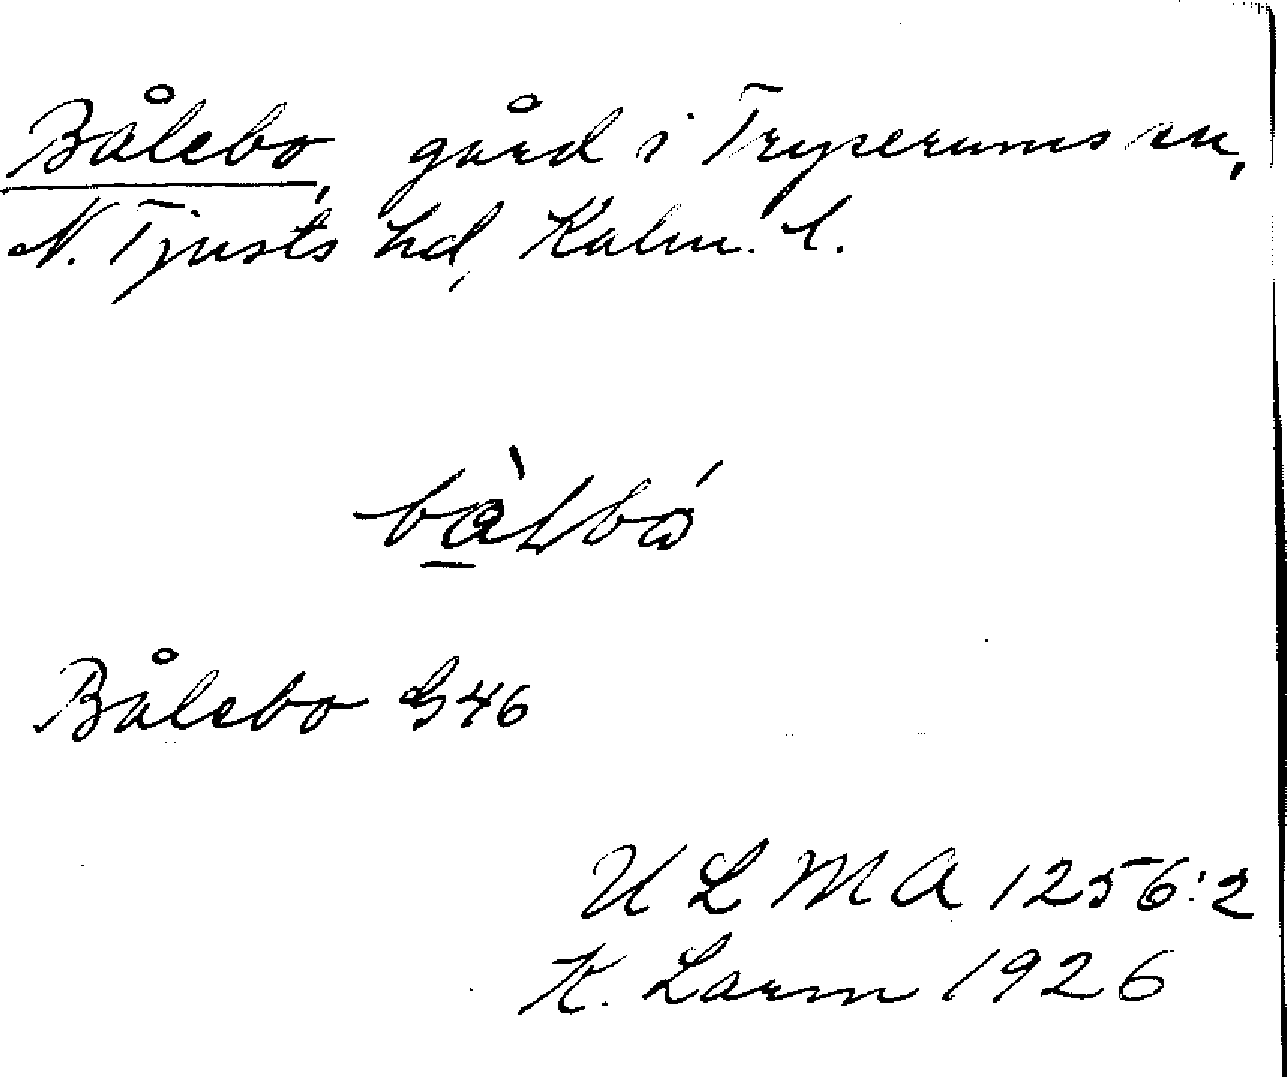 Bålebo, gård i Tryserums sn,
N. Tjusts hd, Kalm. l.
Bålebo G46
ULMA 1256:2
K. Larm 1926